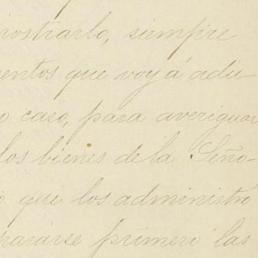 mostrarlo, siempre
entos que voy á adu
o caso, para averiguar
los bienes de la Seño-
o que los administró
pararse primero las